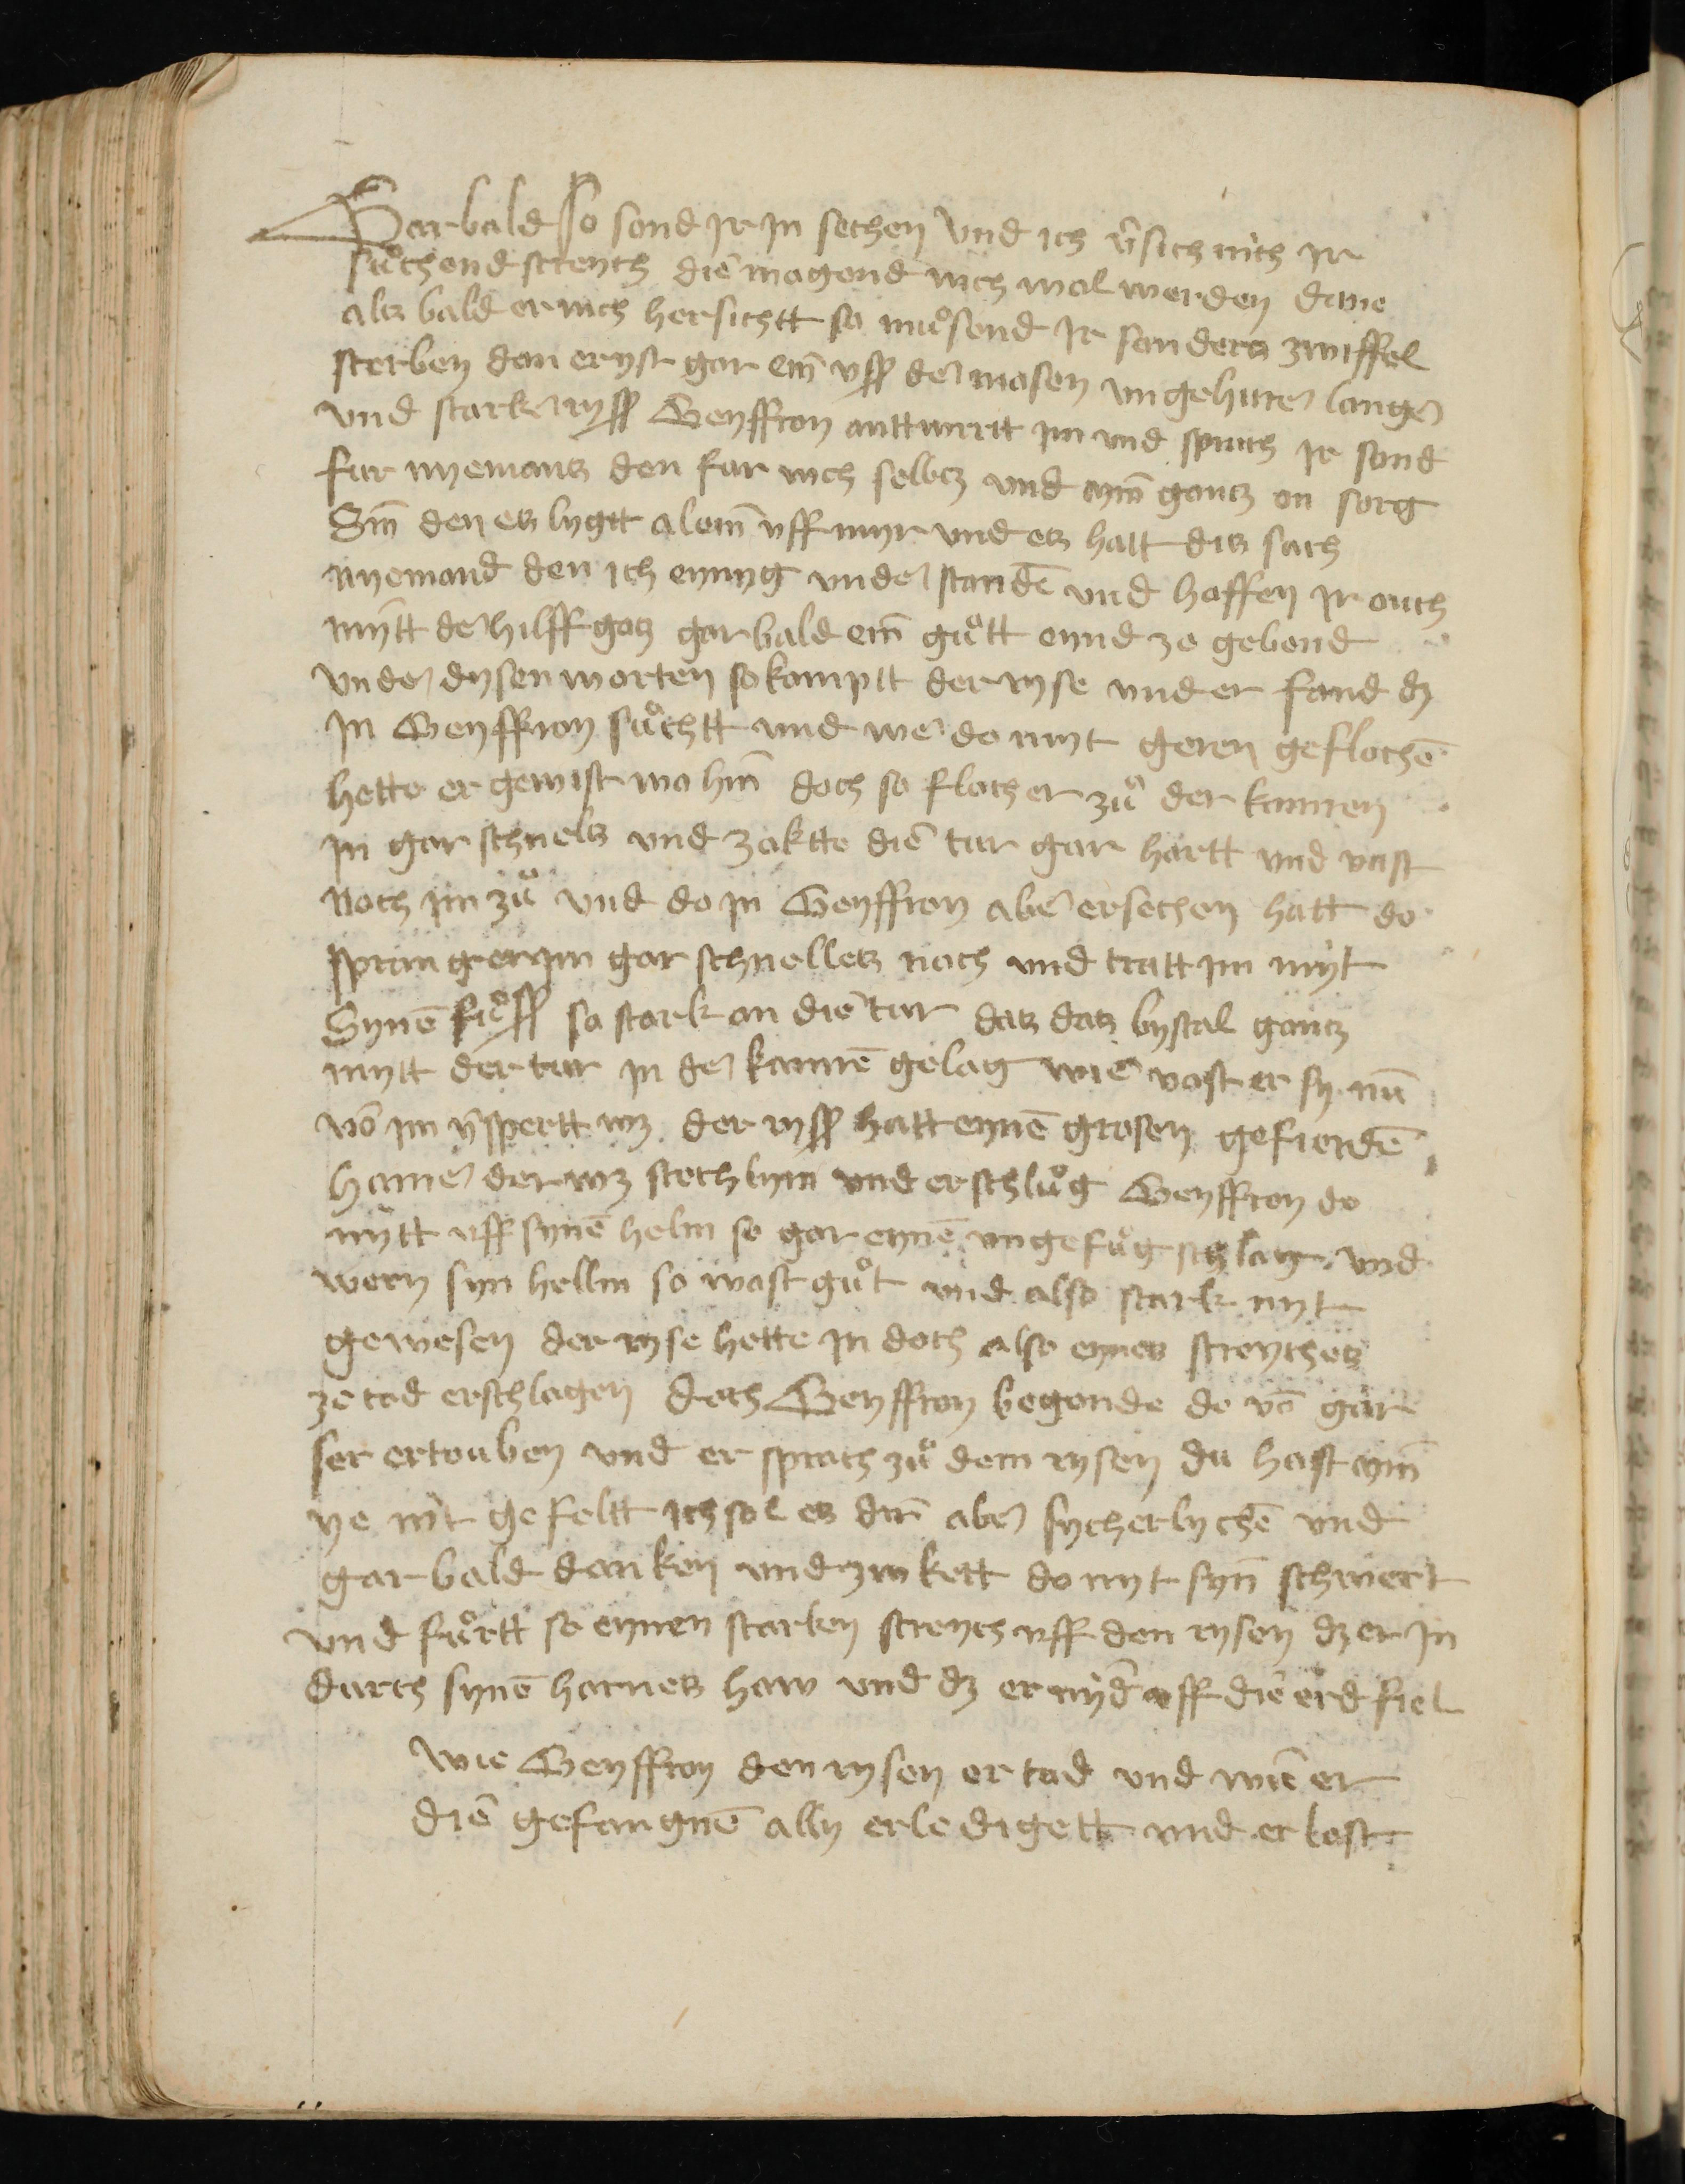 Gar bald so sond Ir In sechen Vnd ich v̄sich mich Ir
suͦchend streych die magend vich wol werden dane
alß bald er vich hersichtt so muͦsend Ir sonderß zwiffel
sterben den er yst gar ein̄ vsß der mosen vngehure lange
vnd starke ryß Geyffroy anttwurtt im vnd sprach ir sond
fur nyemanß den fur vch selbß vnd myn̄ gantz on sorg
Sin̄ den eß lygtt alein̄ vff myr vnd eß hatt diß sach
nyemand den ich eynyg vnder standē vnd hoffen ir ouch
mytt der hilff gotz gar bald ein̄ guͦtt eynd ze gebend
vnder dysen worten so komptt der ryse vnd er fand dz
In Geyffroy suͦchtt vnd wer do myt geren geflochē
hette er gewist wo hin̄ doch so floch er zuͦ der kamren
in gar schnelß vnd zoktte die tur gar hartt vnd vast
noch im zuͦ vnd do in Geyffroy aber ersechen hatt do
sprang er ym gar schnelleß noch vnd tratt im myt
Synē fuͦsß so stark an die tur daß daß bystal gantz
mytt der tur in der kamrē gelag wie vast er sy nū
vō im v̄spertt wz der ryß hatt eynē grosen gefierdē
hamer der wz stechlym vnd er schluͦg Geyffroy do
mytt vff synē helm so gar eynē vngefuͦg schlag vnd
wery syn hellm so wast guͦt vnd also stark nyt
gewesen der ryse hette in doch also eyneß streycheß
ze tod erschlagen doch Geyffroy begonde do vō gar
ser ertouben vnd er sprach zuͦ dem rysen du hast mym̄
ye nit gefeltt ich sol eß dir aber sycherlychē vnd
gar bald danken vnd zwkett do myt syn̄ schwert
vnd fuͦrtt so eynen starken streych vff den rysen dz er in
durch synē harneß haw vnd dz er nyd vff die erd fiel
Wie Geyffroy den rysen er tod vnd wie er
die gefangnē ally erledigett vnd erlost